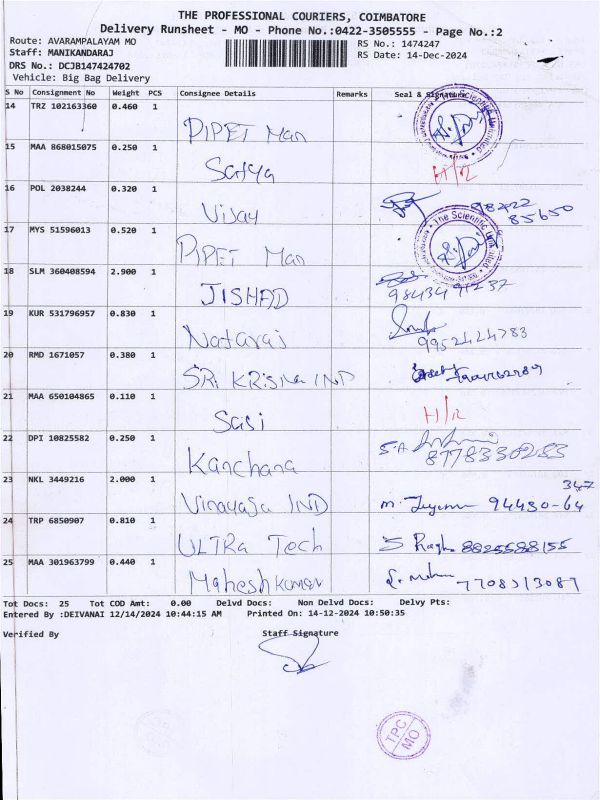 THE PROFESSIONAL COURIERS, COIMBATORE
Delivery Runsheet - MO - Phone No.:0422-3505555 - Page No.:2
Route: AVARAMPALAYAM MO
RS No.: 1474247
Staff: MANIKANDARAJ
RS Date: 14-Dec-2024
DRS No.: DCJB147424702
Vehicle: Big Bag Delivery
S No Consignment No Weight PCS Consignee Details Remarks Seal & Signature
14 TRZ 102163360 0.460 1 PIPET Man
15 MAA 868015075 0.250 1 Satya H/R
16 POL 2038244 0.320 1 Vijay 98422 85650
The Scientific
17 MYS 51596013 0.520 1 PIPET Man
18 SLM 360408594 2.900 1 JISHAD 98434 91237
19 KUR 531796957 0.830 1 Nataraj 9952424783
20 RMD 1671057 0.380 1 SRI KRISHNA IND
21 MAA 650104865 0.110 1 Sasi H/R
22 DPI 10825582 0.250 1 Kanchana 8778330253
23 NKL 3449216 2.000 1 Vinayaga IND 94430-64 347
24 TRP 6850907 0.810 1 ULTRA Tech S Ragh 8825588155
25 MAA 301963799 0.440 1 Maheshkumar 7708313087
Tot Docs: 25 Tot COD Amt: 0.00 Delvd Docs: Non Delvd Docs: Delvy Pts:
Entered By :DEIVANAI 12/14/2024 10:44:15 AM Printed On: 14-12-2024 10:50:35
Verified By Staff Signature
TPC
MO